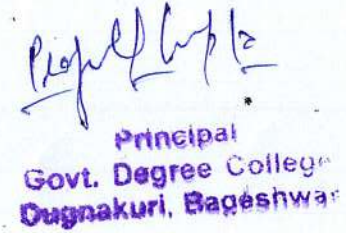 Gupta
Principal
Govt. Degree College
Dugnakuri, Bageshwar